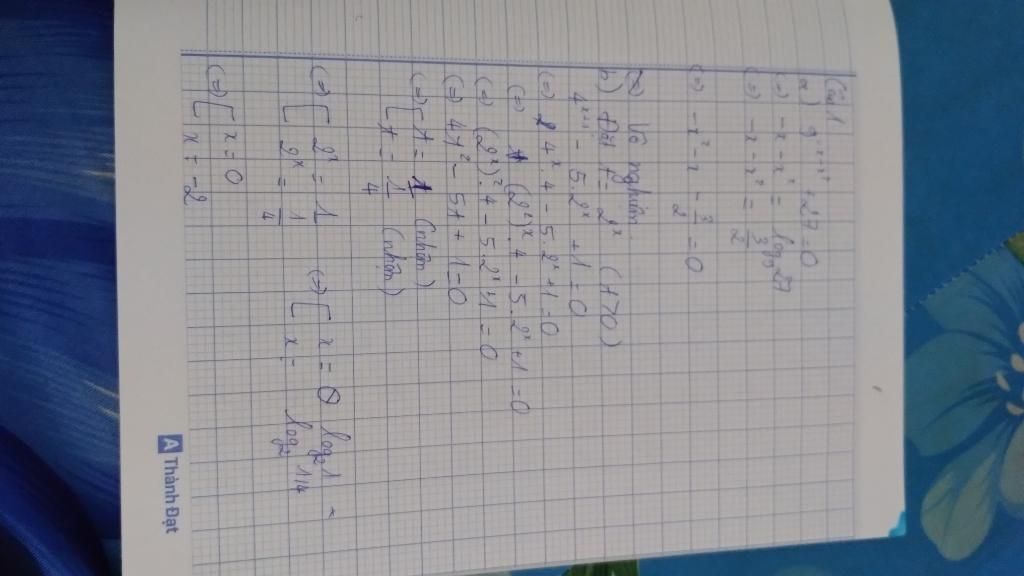 Câu 1
a) 9^{-x-x²} + 27 = 0
(=) -x - x² = log₉27
(=) -x - x² = 3/2
(=) -x² - x - 3/2 = 0
(=) Vô nghiệm.
b) Đặt t = 2^x (t > 0)
4^{x+1} - 5.2^x + 1 = 0
(=) 4^x.4 - 5.2^x + 1 = 0
(=) (2²)^x.4 - 5.2^x + 1 = 0
(=) (2^x)².4 - 5.2^x + 1 = 0
(=) 4t² - 5t + 1 = 0
(=) [ t = 1 (nhận)
t = 1/4 (nhận)
(=) [ 2^x = 1 (=) [ x = log₂1 = 0
2^x = 1/4 x = log₂ 1/4
(=) [ x = 0
x = -2
A Thành Đạt